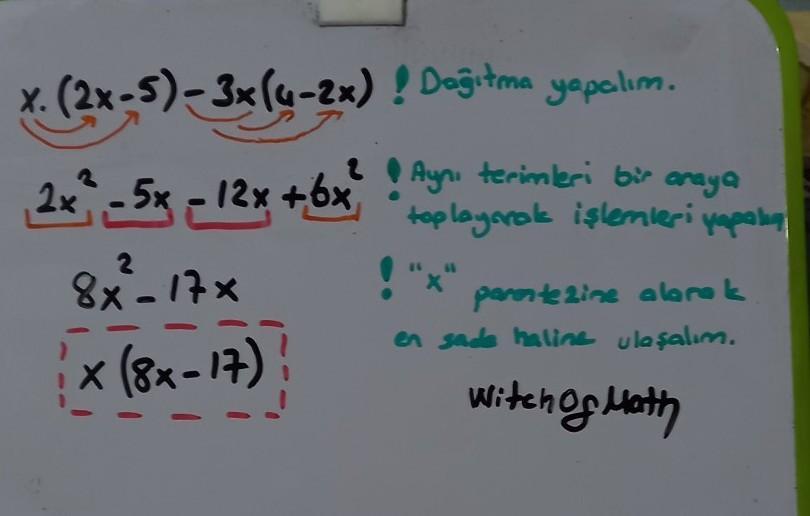 x.(2x-5)-3x(4-2x) ! Dağıtma yapalım.
2x² -5x -12x +6x² ! Aynı terimleri bir araya
toplayarak işlemleri yapalım
8x² - 17x ! "x" parantezine alarak
en sade haline ulaşalım.
x(8x-17)
WitchOfMath